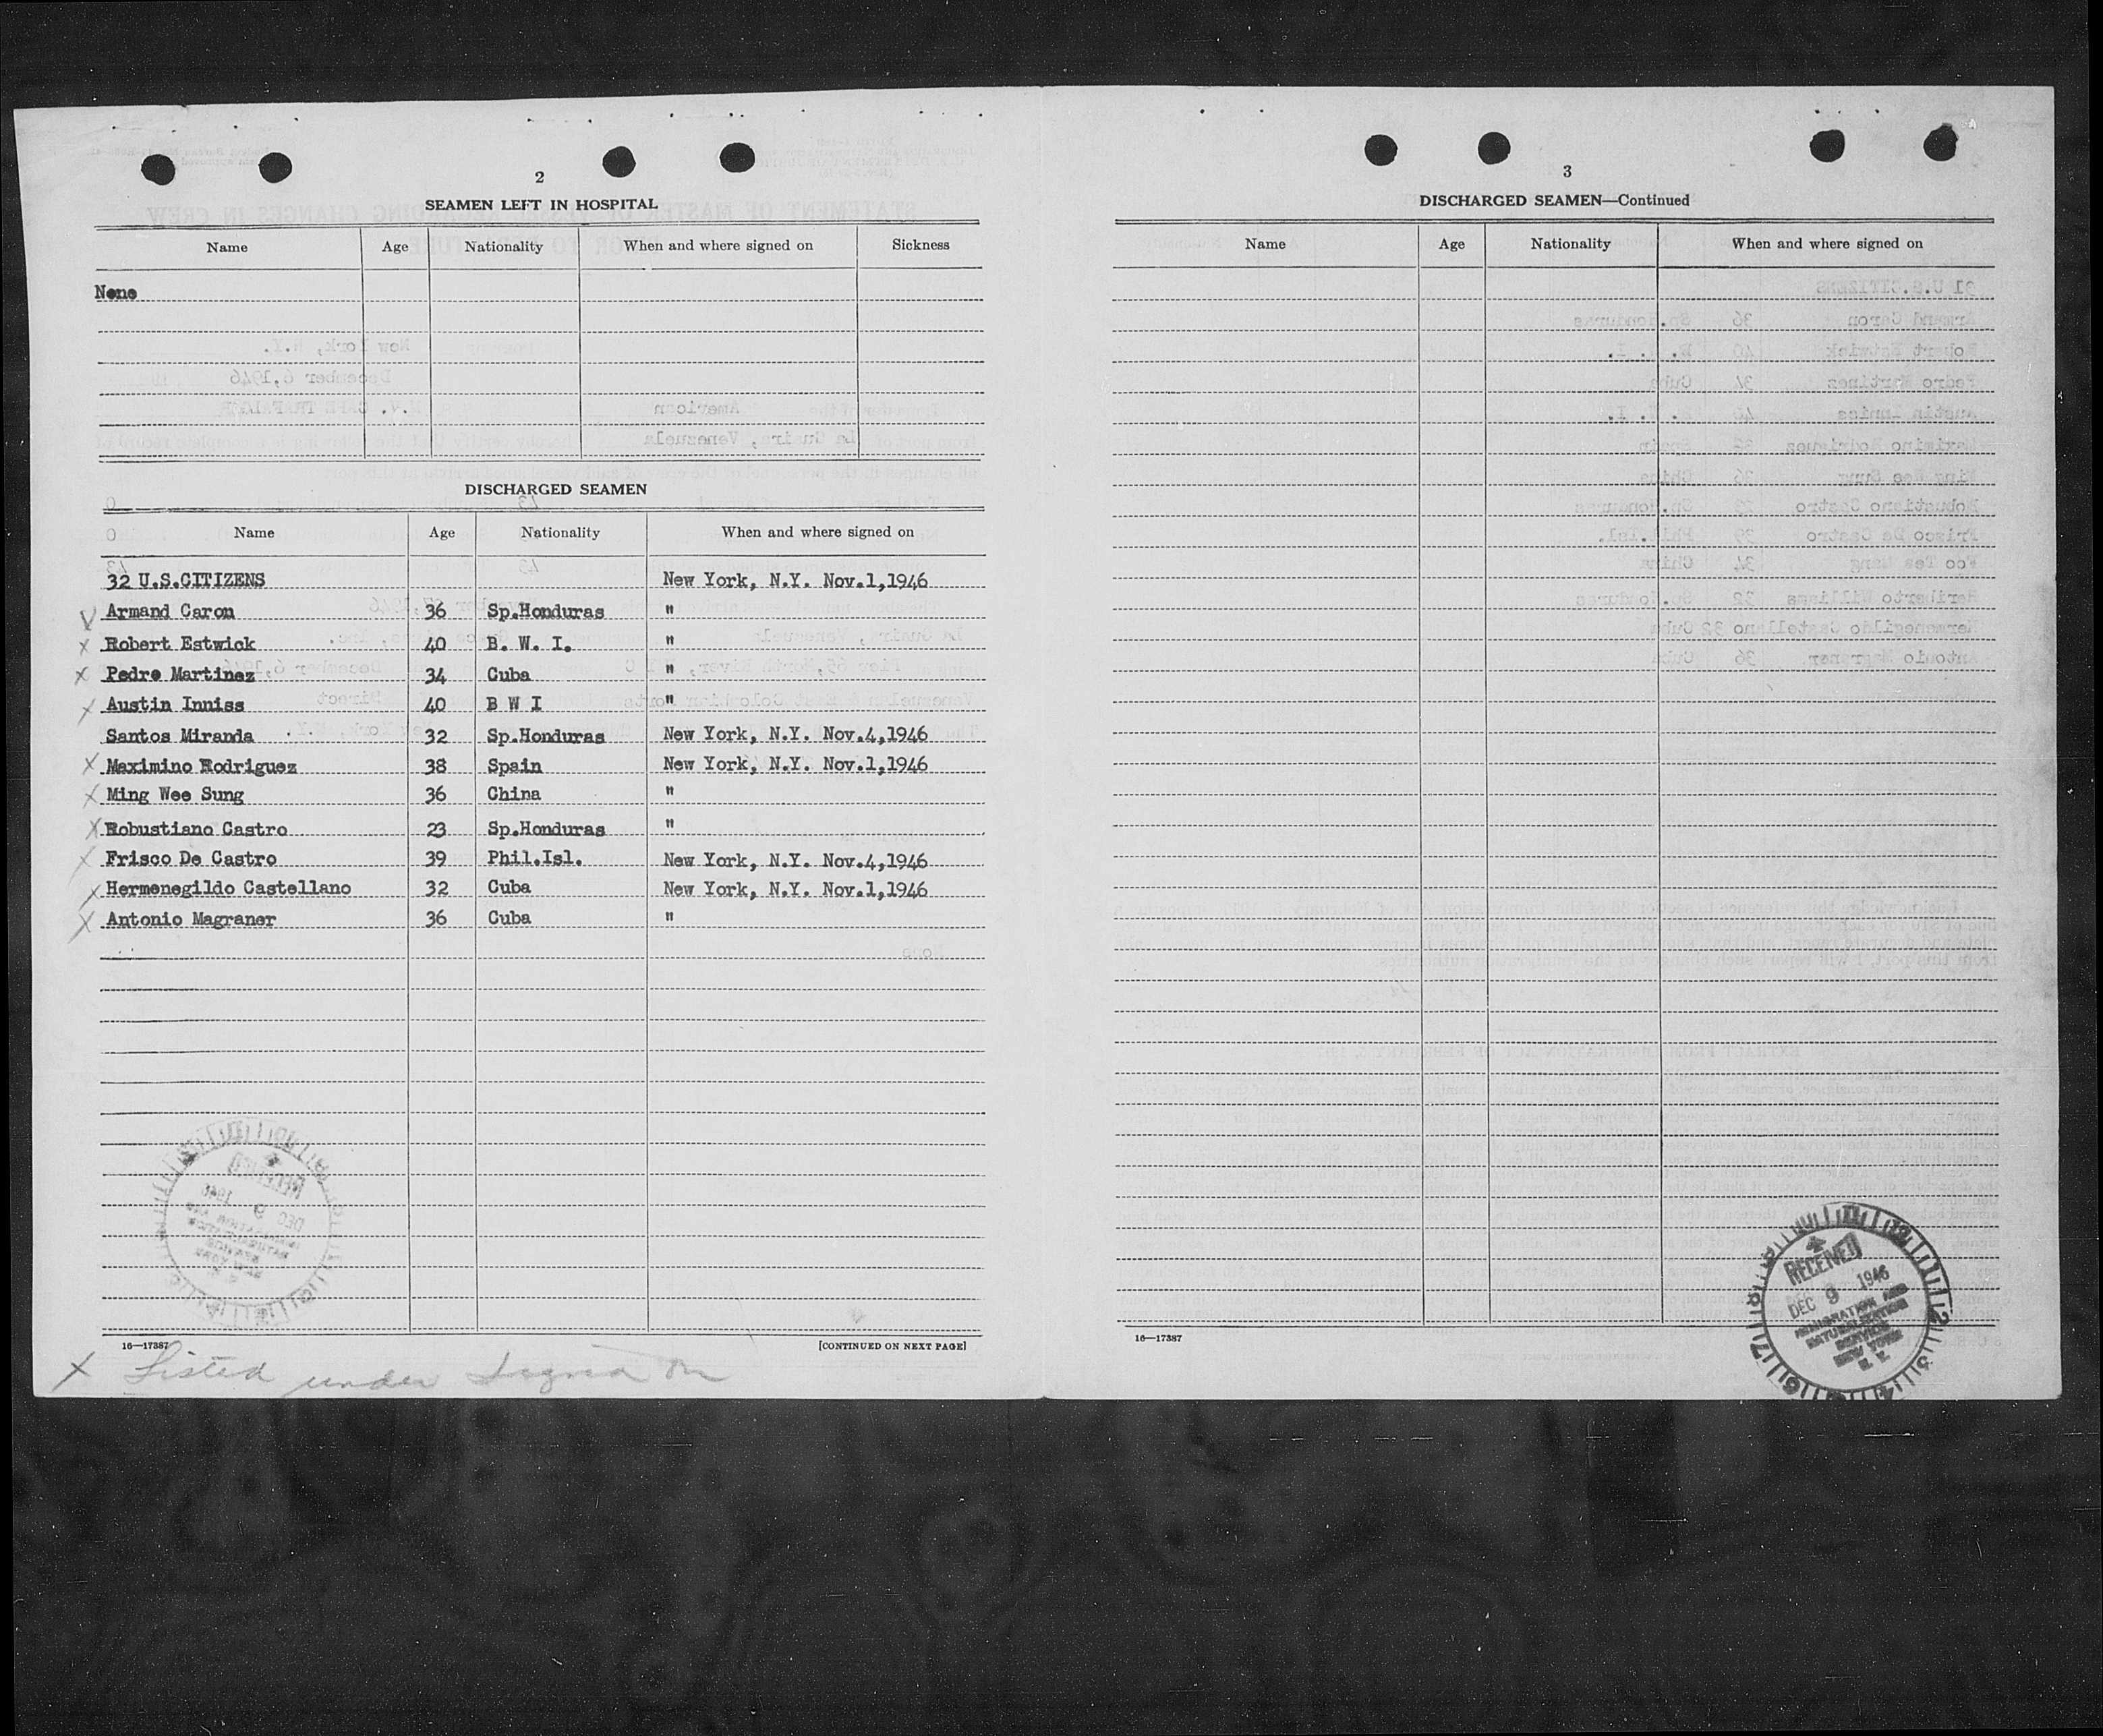 2
SEAMEN LEFT IN HOSPITAL
Name Age Nationality When and where signed on Sickness
None
DISCHARGED SEAMEN
Name Age Nationality When and where signed on
32 U.S.CITIZENS New York, N.Y. Nov.1,1946
Armand Caron 36 Sp.Honduras "
X Robert Estwick 40 B. W. I. "
X Pedro Martinez 34 Cuba "
X Austin Inniss 40 B W I "
Santos Miranda 32 Sp.Honduras New York, N.Y. Nov.4,1946
X Maximino Rodriguez 38 Spain New York, N.Y. Nov.1,1946
X Ming Wee Sung 36 China "
X Robustiano Castro 23 Sp.Honduras "
X Frisco De Castro 39 Phil.Isl. New York, N.Y. Nov.4,1946
X Hermenegildo Castellano 32 Cuba New York, N.Y. Nov.1,1946
X Antonio Magraner 36 Cuba "
16—17387 [CONTINUED ON NEXT PAGE]
X Listed under Signed on
3
DISCHARGED SEAMEN—Continued
Name Age Nationality When and where signed on
16—17387
RECEIVED
DEC 9 1946
IMMIGRATION AND
NATURALIZATION
SERVICE
NEW YORK
N. Y.